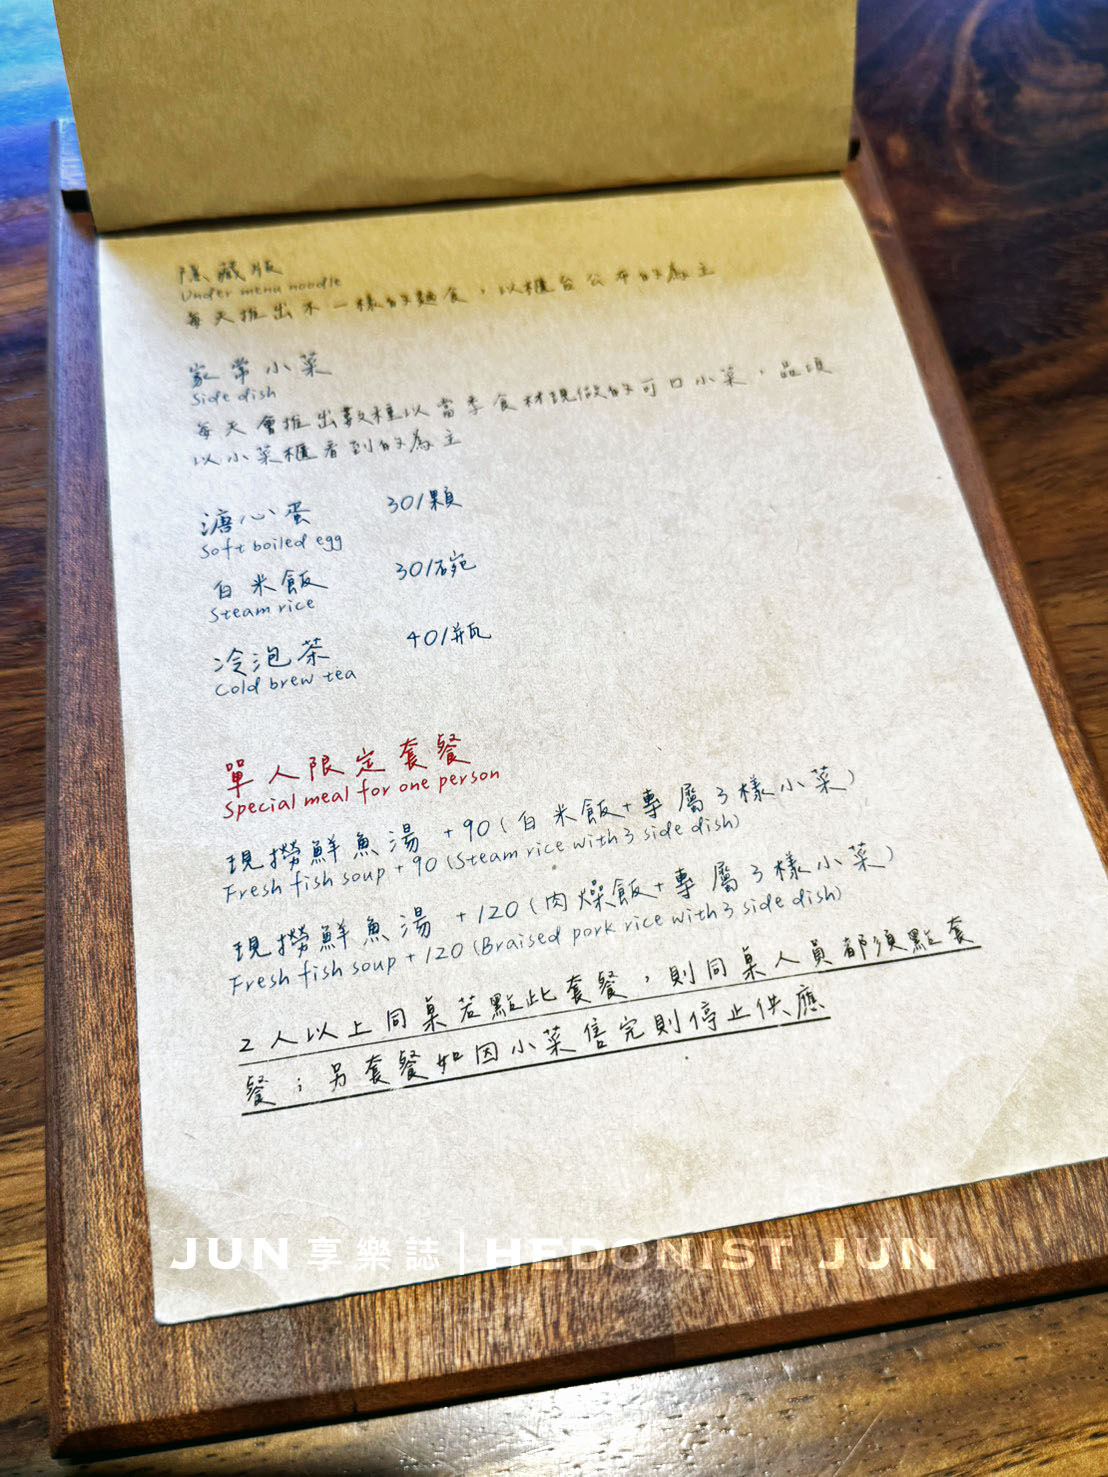 隱藏版
Under menu noodle
每天推出不一樣的麵食，以櫃台公布的為主
家常小菜
Side dish
每天會推出數種以當季食材現做的可口小菜，品項
以小菜櫃看到的為主
溏心蛋 30/顆
Soft boiled egg
白米飯 30/碗
Steam rice
冷泡茶 40/瓶
Cold brew tea
單人限定套餐
Special meal for one person
現撈鮮魚湯 +90（白米飯+專屬3樣小菜）
Fresh fish soup +90 (Steam rice with 3 side dish)
現撈鮮魚湯 +120（肉燥飯+專屬3樣小菜）
Fresh fish soup +120 (Braised pork rice with 3 side dish)
2人以上同桌若點此套餐，則同桌人員都須點套
餐；另套餐如因小菜售完則停止供應
JUN 享樂誌 | HEDONIST JUN